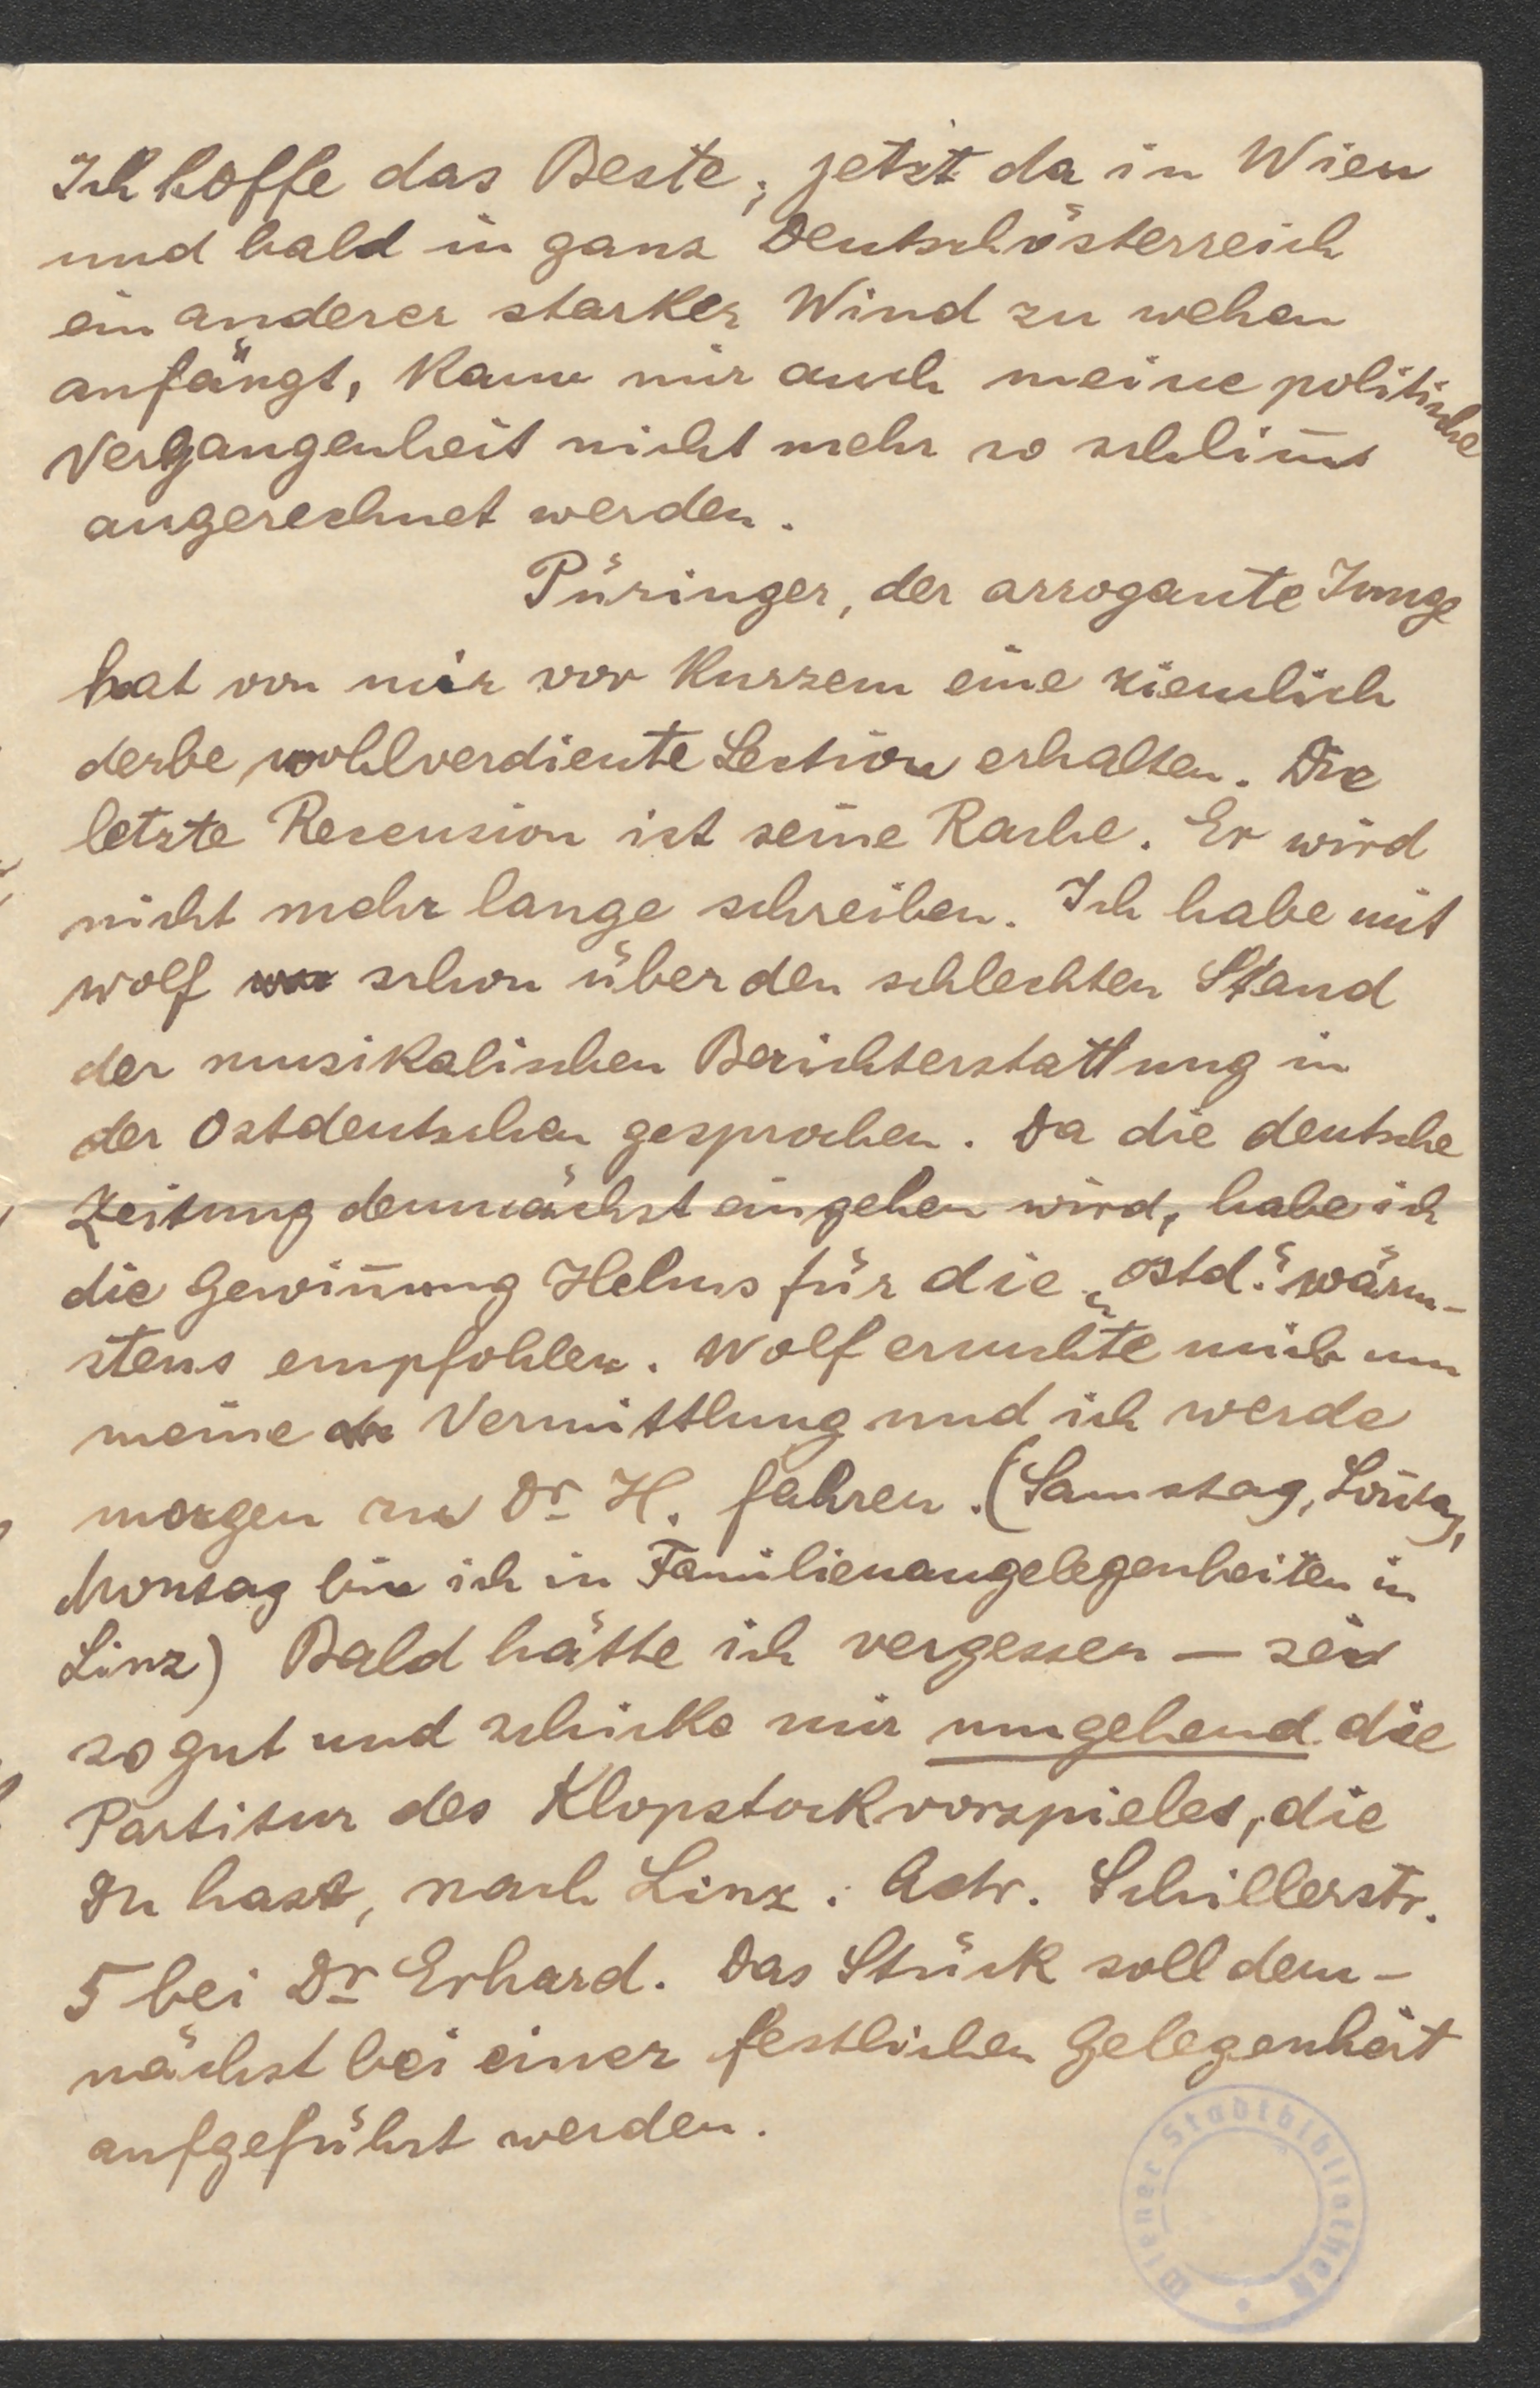 Ich hoffe das Beste, jetzt da in Wien
und bald in ganz Deutschösterreich
ein anderer starker Wind zu wehen
anfängt, kann mir auch meine politische
Vergangenheit nicht mehr so schlim̄s
angerechnet werden.
Püringer, der arrogante Junge
hat von mir vor Kurzem eine ziemlich
derbe wohlverdiente Lection erhalten. Die
letzte Recension ist seine Rache. Er wird
nicht mehr lange schreiben. Ich habe mit
Wolf schon über den schlechten Stand
der musikalischen Berichterstattung in
der Ostdeutschen gesprochen. Da die deutsche
Zeitung demnächst eingehen wird, habe ich
die Gewin̄ung Helms für die „Ostd.“ wärm-
stens empfohlen. Wolf ersuchte mich um
meine Vermittlung und ich werde
morgen zu Dr. H. fahren. (Samstag, Son̄tag,
Montag bin ich in Familienangelegenheiten in
Linz) Bald hätte ich vergessen — sei
so gut und schicke mir umgehend die
Partitur des Klopstockvorspieles, die
Du hast, nach Linz. Adr. Schillerstr.
5 bei Dr. Erhard. Das Stück soll dem-
nächst bei einer festlichen Gelegenheit
aufgeführt werden.
Wiener Stadtbibliothek